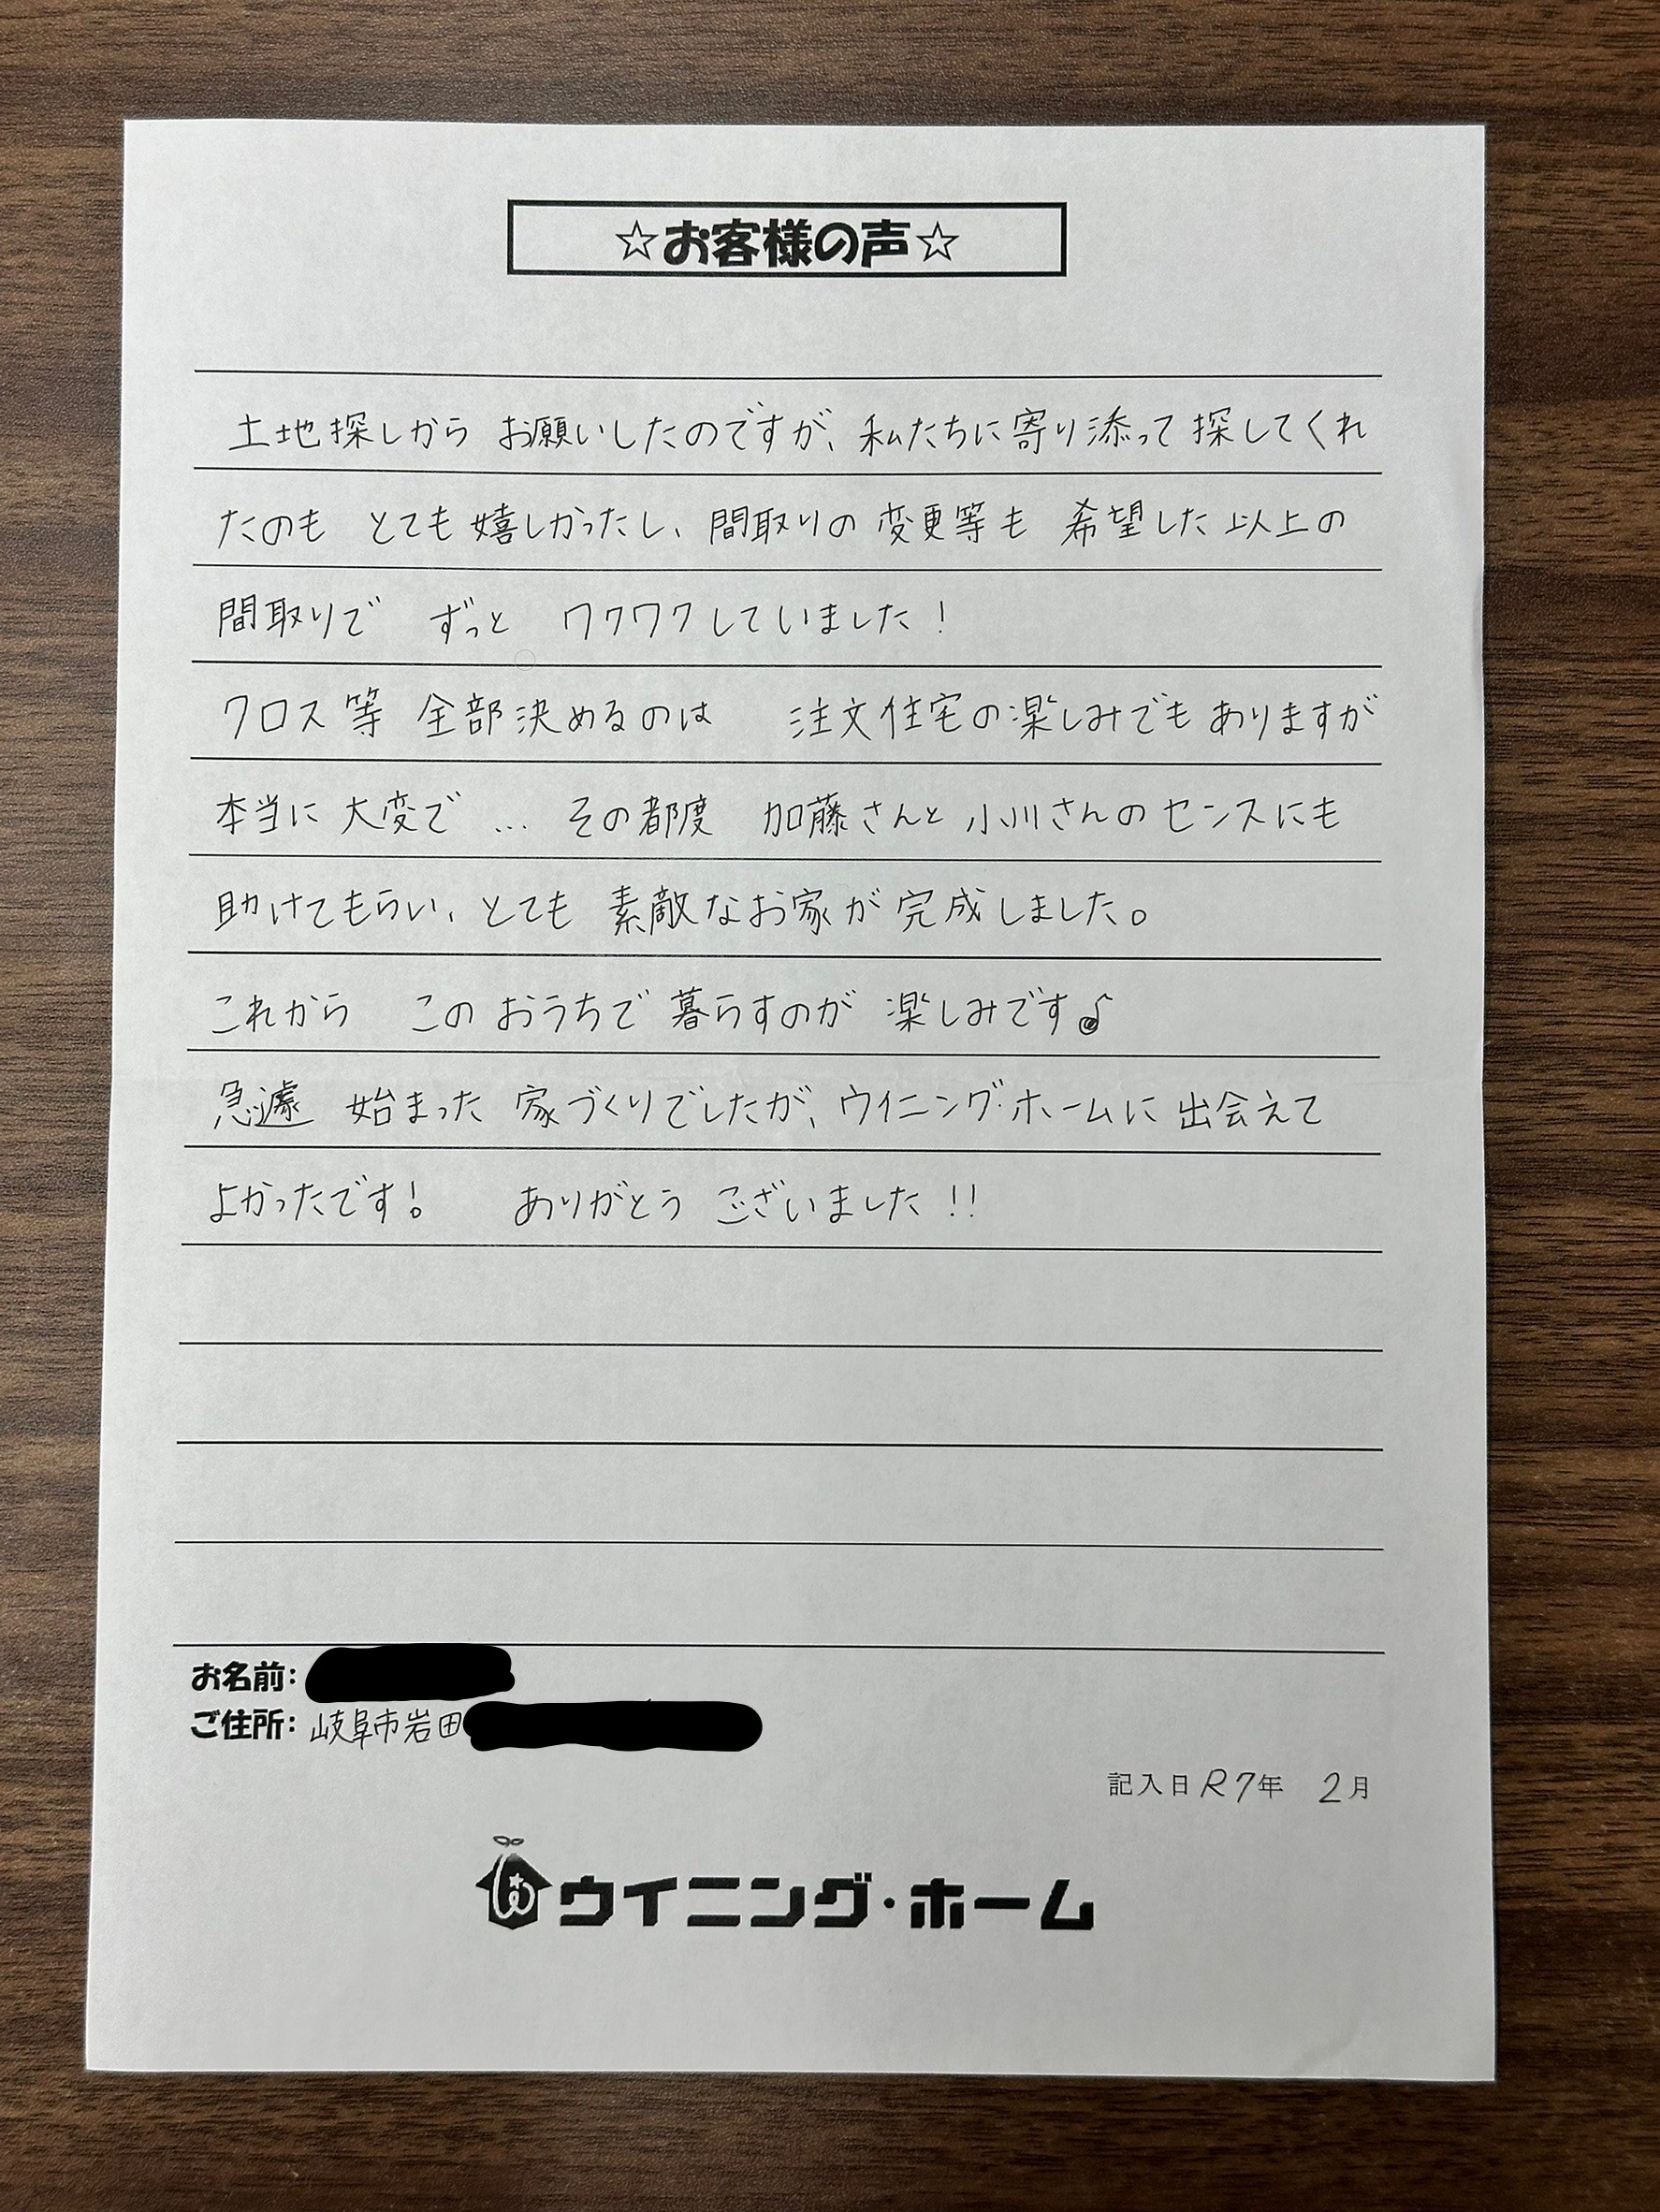 ☆お客様の声☆
土地探しから お願いしたのですが、私たちに寄り添って 探してくれ
たのも とても嬉しかったし、間取りの 変更等も 希望した以上の
間取りで ずっと ワクワクしていました！
クロス等 全部決めるのは 注文住宅の楽しみでもありますが
本当に 大変で … その都度 加藤さんと 小川さんのセンスにも
助けてもらい、とても 素敵なお家が完成しました。
これから このおうちで 暮らすのが 楽しみです♪
急遽 始まった 家づくりでしたが、ウイニング・ホームに 出会えて
よかったです！ ありがとう ございました！！
お名前：
ご住所：岐阜市岩田
記入日 R7年 2月
ウイニング・ホーム